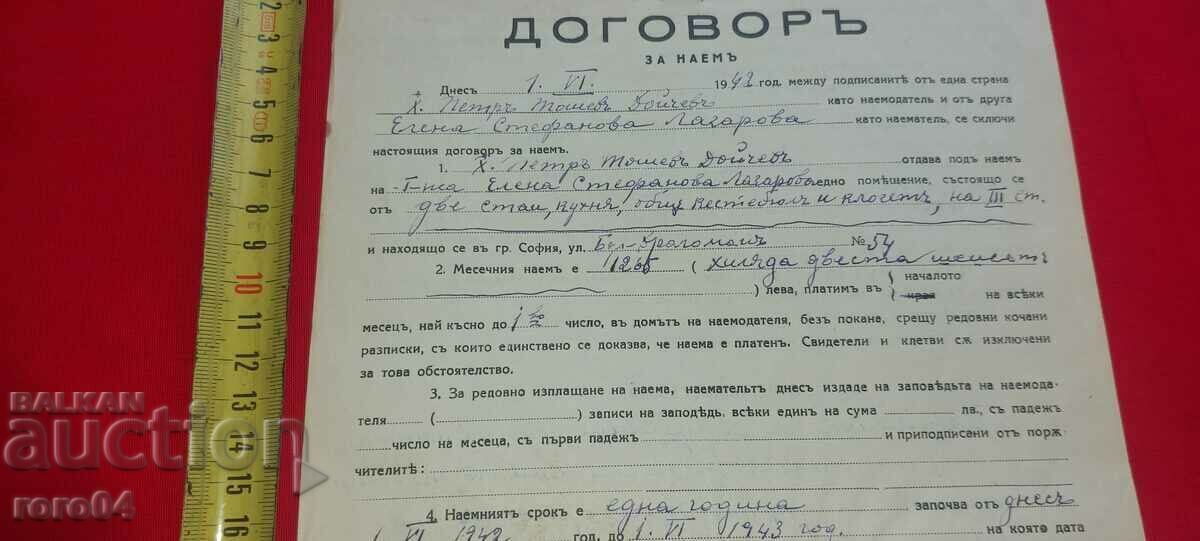 ДОГОВОРЪ
ЗА НАЕМЪ
Днесъ 1. VI. 1942 год. между подписанитѣ отъ една страна
Х. Петръ Тошевъ Дойчевъ като наемодатель и отъ друга
Елена Стефанова Лазарова като наематель, се сключи
настоящия договоръ за наемъ.
1. Х. Петръ Тошевъ Дойчевъ отдава подъ наемъ
на Г-жа Елена Стефанова Лазарова едно помѣщение, състоящо се
отъ две стаи, кухня, общъ вестебюлъ и клозетъ, на III ет.
и находящо се въ гр. София, ул. №54
2. Месечния наемъ е (хиляда двеста
) лева, платимъ въ { началото
края на всѣки
месецъ, най късно до 1 во число, въ домътъ на наемодателя, безъ покане, срещу редовни кочани
разписки, съ които единствено се доказва, че наема е платенъ. Свидетели и клетви сѫ изключени
за това обстоятелство.
3. За редовно изплащане на наема, наемательтъ днесъ издаде на заповѣдьта на наемода-
теля ( ) записи на заподѣдь, всѣки единъ на сума лв., съ падежъ
число на месеца, съ първи падежъ и приподписани отъ порж-
чителитѣ:
4. Наемниятъ срокъ е една година започва отъ днесъ
1 VI 1942 год. до 1. VI 1943 год. на която дата
2 3 4 5 6 7 8 9 10 11 12 13 14 15 16
BALKAN
auction
roro04